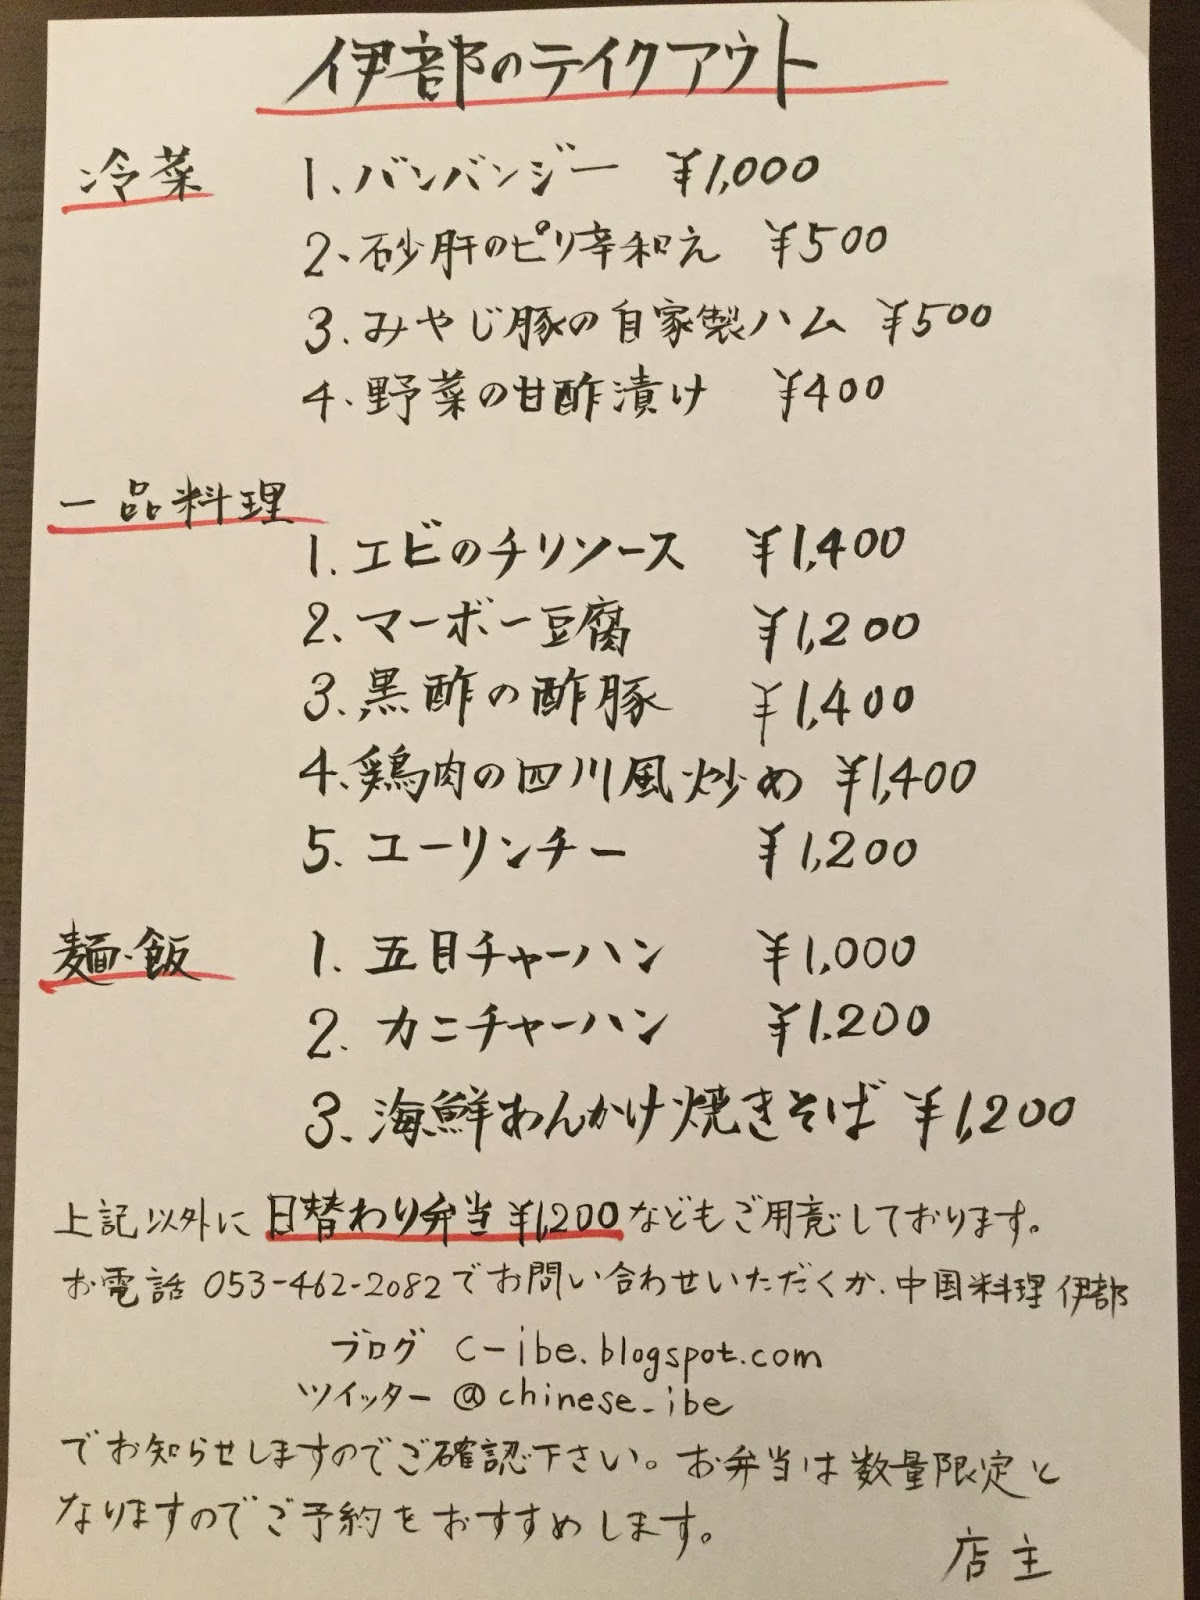 伊部のテイクアウト
冷菜 1、バンバンジー ¥1,000
2、砂肝のピリ辛和え ¥500
3、みやじ豚の自家製ハム ¥500
4、野菜の甘酢漬け ¥400
一品料理
1、エビのチリソース ¥1,400
2、マーボー豆腐 ¥1,200
3、黒酢の酢豚 ¥1,400
4、鶏肉の四川風炒め ¥1,400
5、ユーリンチー ¥1,200
麺・飯 1、五目チャーハン ¥1,000
2、カニチャーハン ¥1.200
3、海鮮あんかけ焼きそば ¥1,200
上記以外に日替わり弁当¥1,200などもご用意しております。
お電話 053-462-2082でお問い合わせいただくか、中国料理 伊部
ブログ c-ibe.blogspot.com
ツイッター @chinese_ibe
でお知らせしますのでご確認下さい。お弁当は数量限定と
なりますのでご予約をおすすめします。
店主